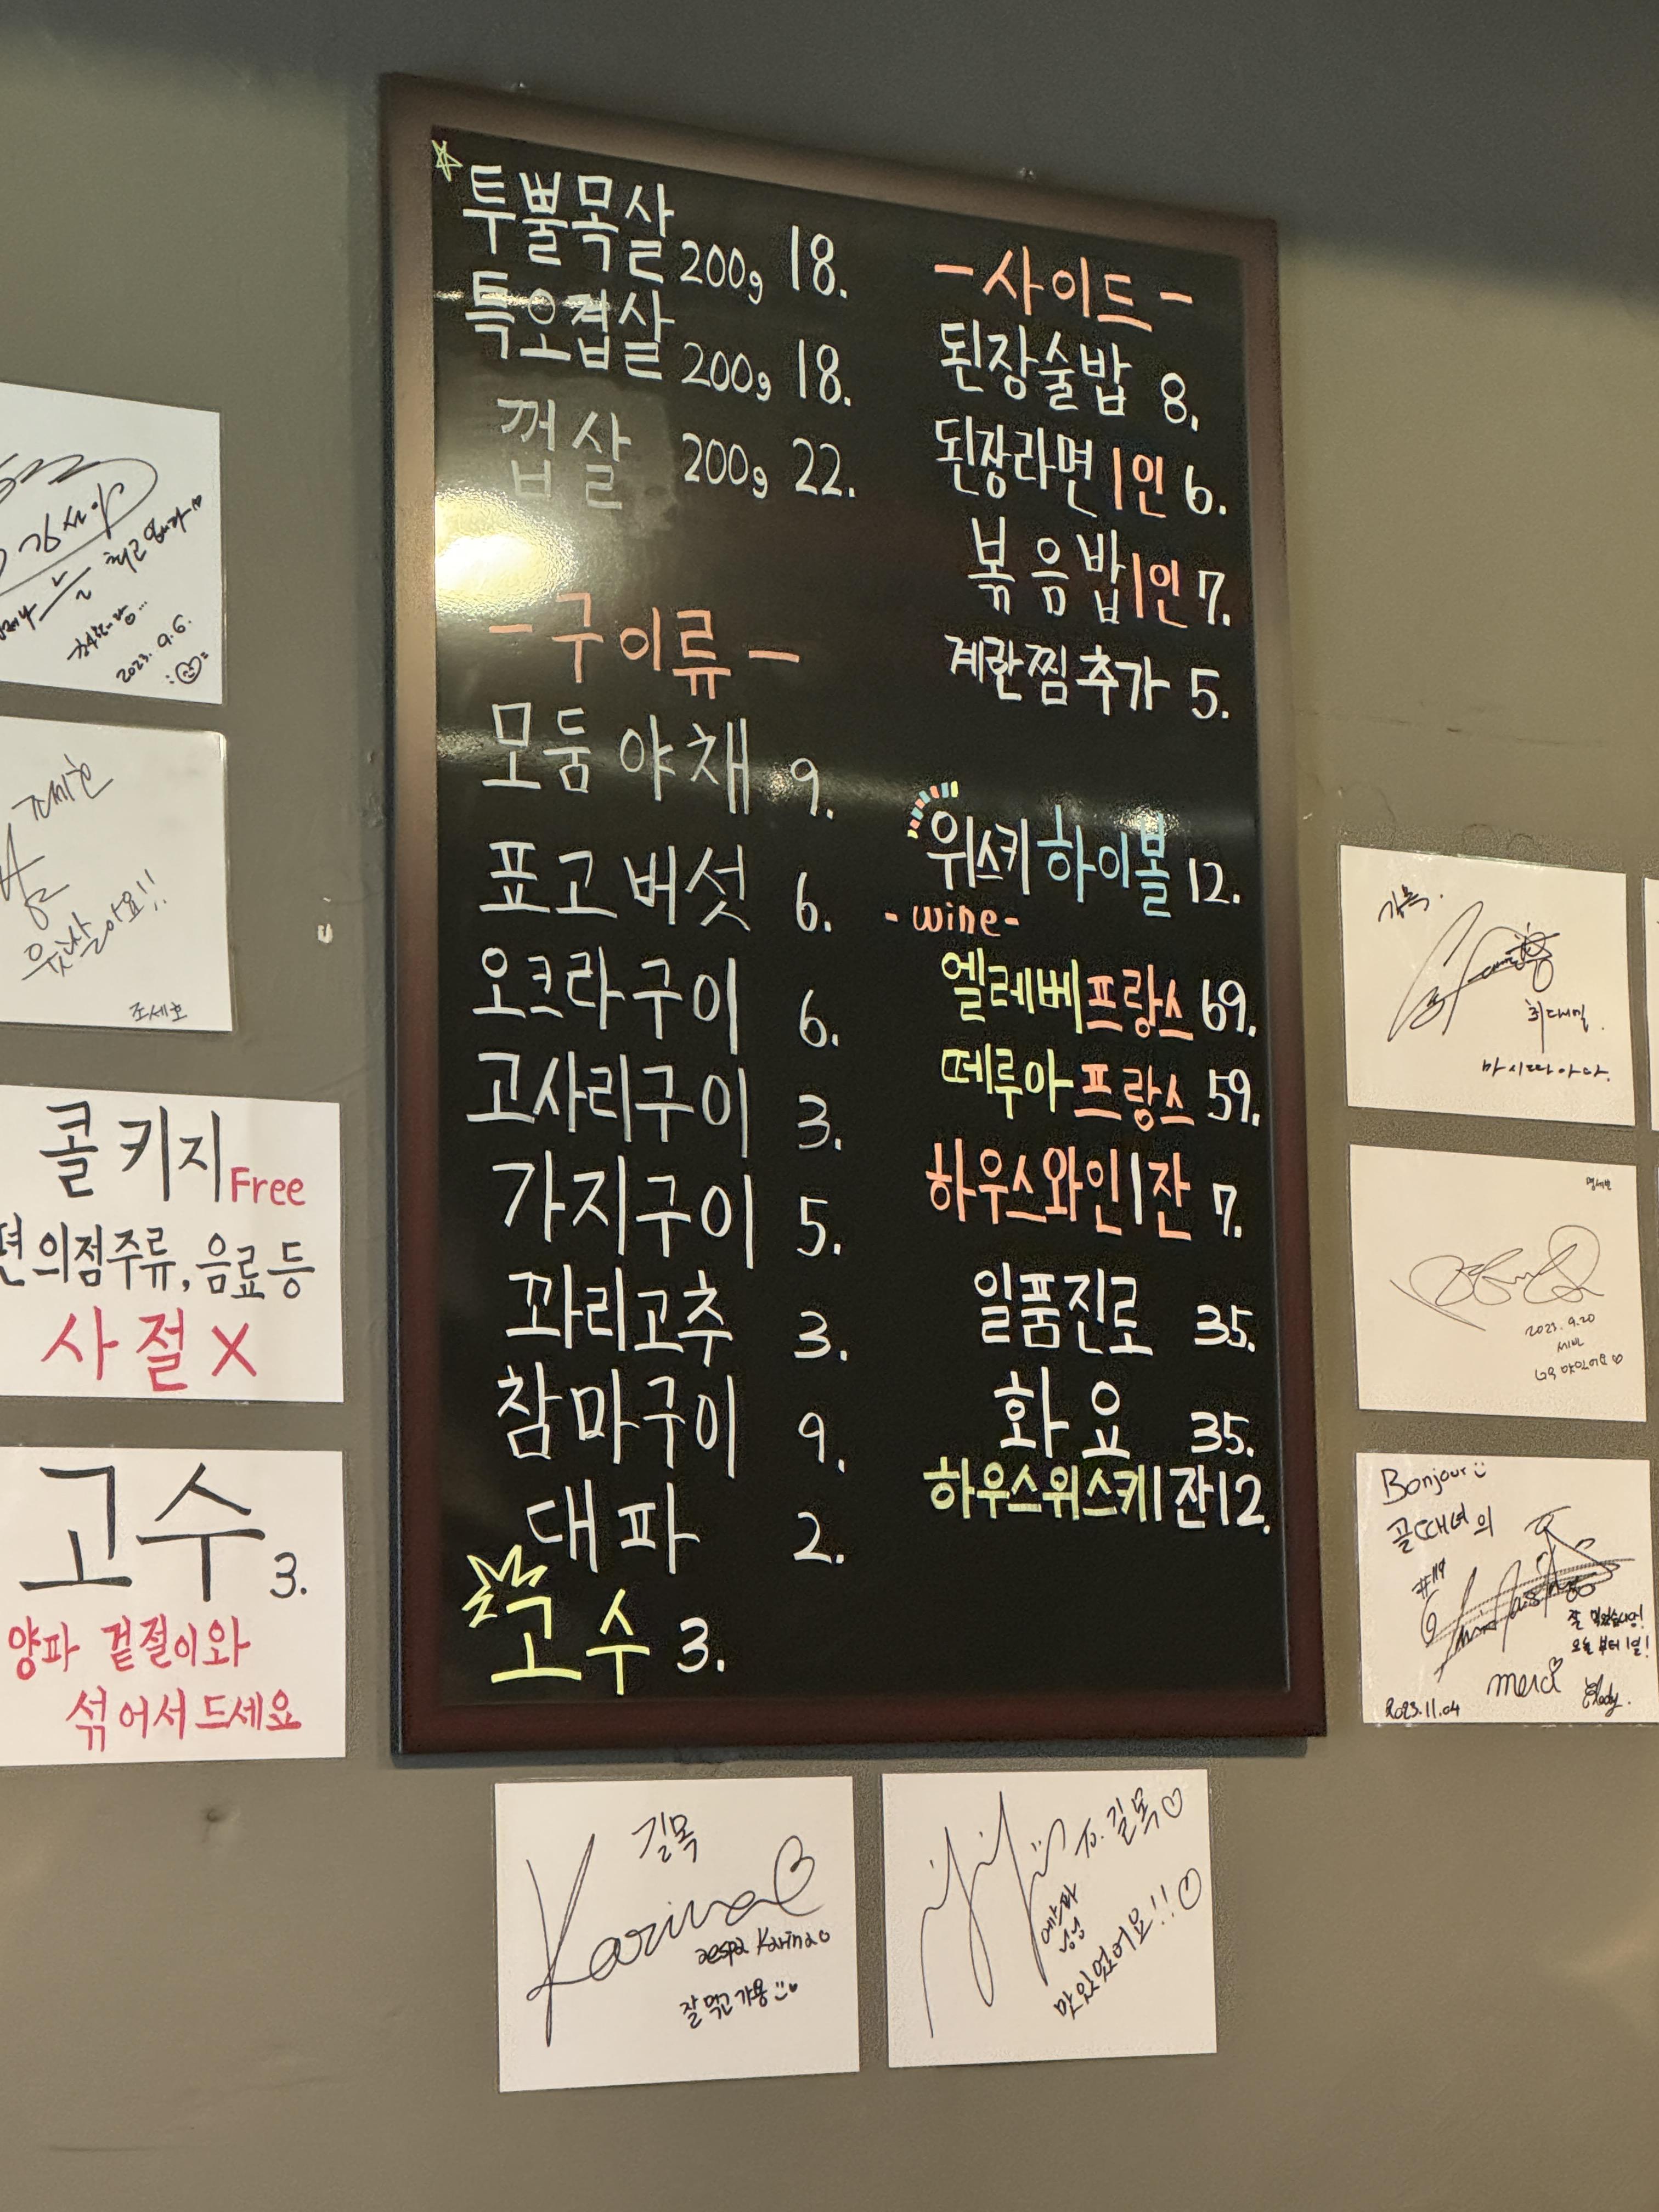 투뿔목살 200g 18.
특오겹살 200g 18.
껍살 200g 22.
-구이류-
모둠야채 9.
표고버섯 6.
오크라구이 6.
고사리구이 3.
가지구이 5.
꽈리고추 3.
참마구이 9.
대파 2.
고수 3.
-사이드-
된장술밥 8.
된장라면 1인 6.
볶음밥 1인 7.
계란찜추가 5.
위스키하이볼 12.
-wine-
엘레베프랑스 69.
떼루아프랑스 59.
하우스와인1잔 7.
일품진로 35.
화요 35.
하우스위스키1잔12.
2023. 9. 6.
조세호
콜키지 Free
편의점주류, 음료 등
사절 X
고수 3.
양파 겉절이와
섞어서 드세요
길목
Karina
aespa Karina
잘먹고 가용
To. 길목♡
에스파
닝닝
맛있었어요!!♡
최대밀.
마시따아다.
2023. 9. 20
Bonjour
골때녀의
잘 먹었습니당!
오늘부터 1일!
merci
2023.11.04